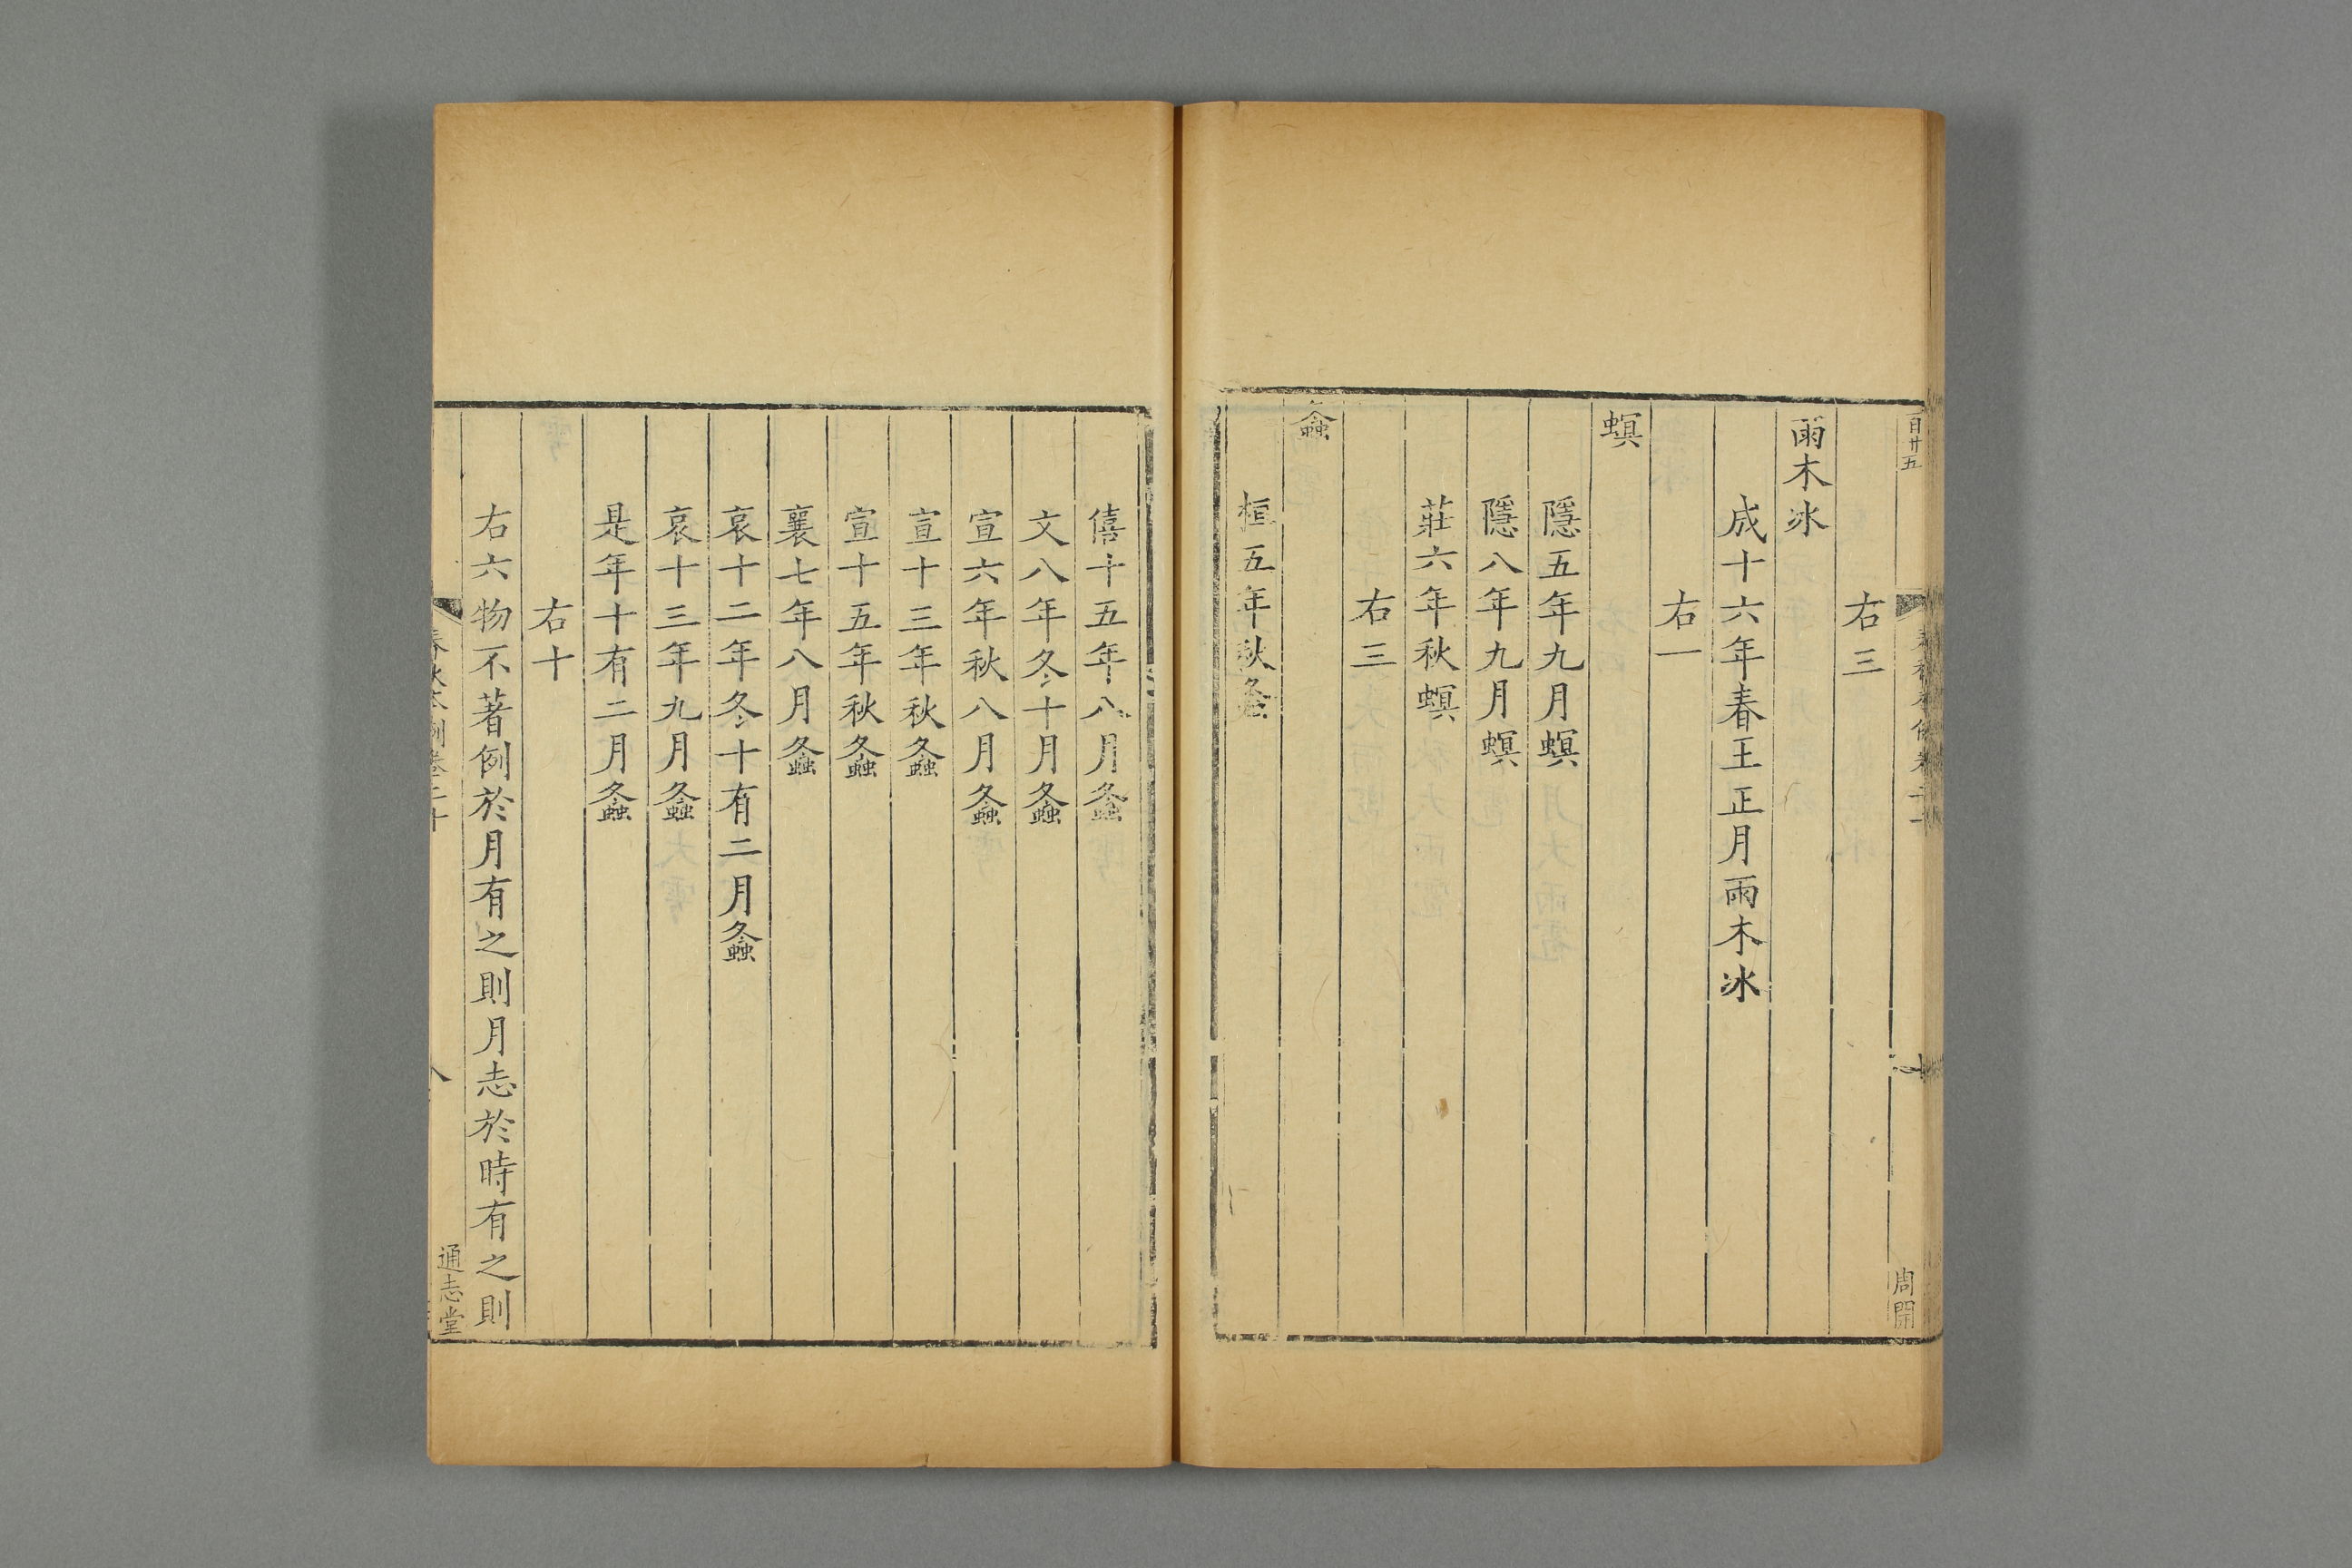 百廿五
周開
右三
雨木冰
成十六年春王正月雨木冰
右一
螟
隱五年九月螟
隱八年九月螟
莊六年秋螟
右三
螽
桓五年秋螽
僖十五年八月螽
文八年冬十月螽
宣六年秋八月螽
宣十三年秋螽
宣十五年秋螽
襄七年八月螽
哀十二年冬十有二月螽
哀十三年九月螽
是年十有二月螽
右十
右六物不著例於月有之則月志於時有之則
春秋本例卷二十
八
通志堂